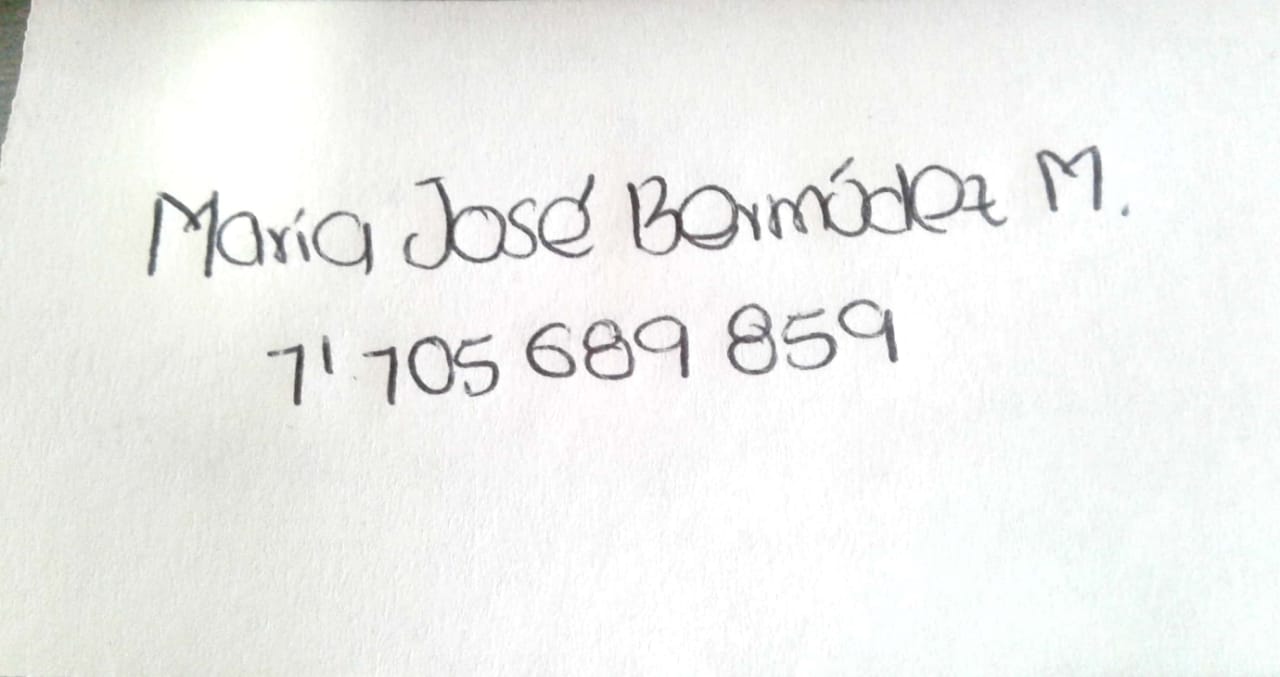 María José Bermúdez M.
7' 705 689 859